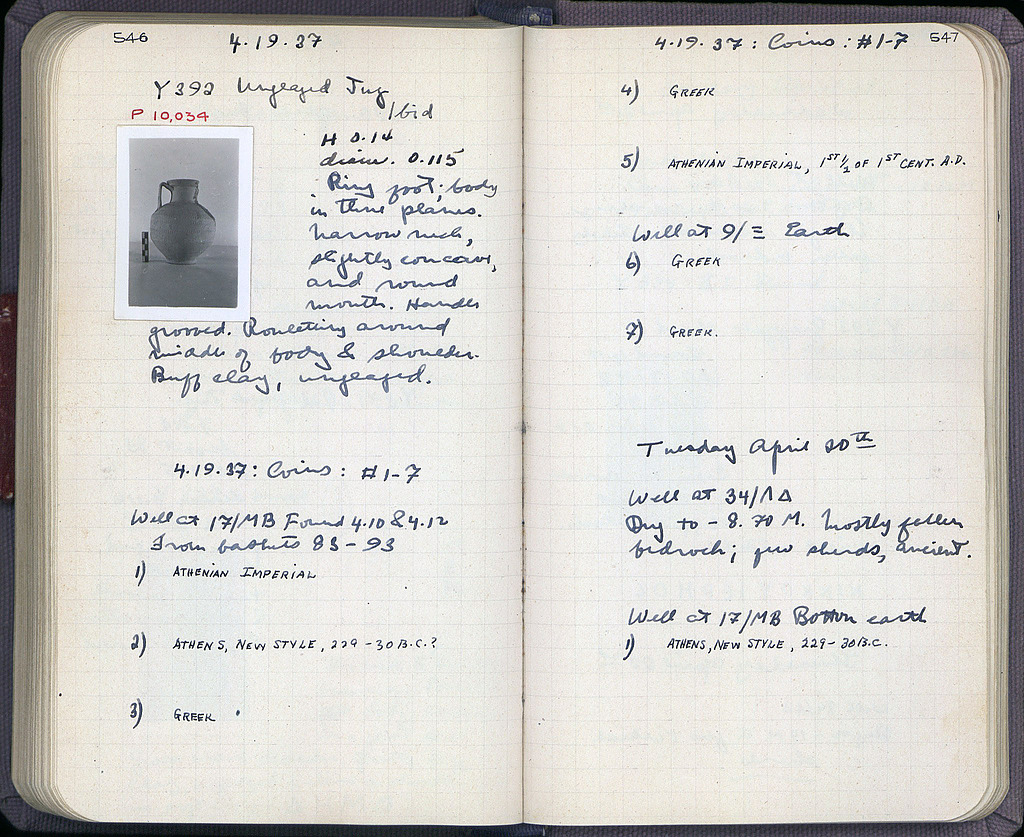 546
4.19.37
Y392 Unglazed Jug
Ibid
P 10,034
H 0.14
diam. 0.115
Ring foot; body
in three planes.
Narrow neck,
slightly concave,
and round
mouth. Handle
grooved. Rouletting around
middle of body & shoulder.
Buff clay, unglazed.
4.19.37: Coins: #1-7
Well at 17/MB Found 4.10 & 4.12
From baskets 83-93
1) ATHENIAN IMPERIAL
2) ATHENS, NEW STYLE, 229-30 B.C.?
3) GREEK
4.19.37: Coins: #1-7
547
4) GREEK
5) ATHENIAN IMPERIAL, 1ST 1/2 OF 1ST CENT. A.D.
Well at 9/Ξ Earth
6) GREEK
7) GREEK.
Tuesday April 20th
Well at 34/ΛΔ
Dug to - 8.70 M. Mostly fallen
bedrock; few sherds, ancient.
Well at 17/MB Bottom earth
1) ATHENS, NEW STYLE, 229-30 B.C.